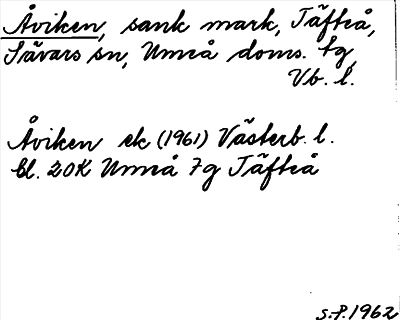 Åviken, sank mark, Täfteå,
Sävars sn, Umeå doms. tg,
Vb. l.
Åviken ek (1961) Västerb. l.
bl. 20K Umeå 7g Täfteå
S.P. 1962